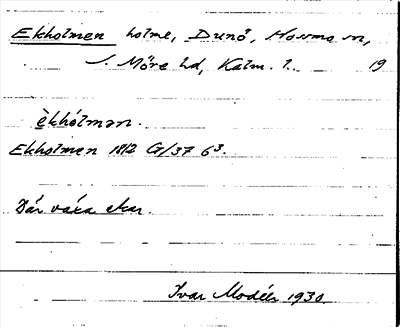 Ekholmen holme, Dunö, Hossmo sn,
S. Möre hd, Kalm. l. 19
èkhólmən.
Ekholmen 1812 G/37 63.
Där växa ekar.
Ivar Modéer 1930.